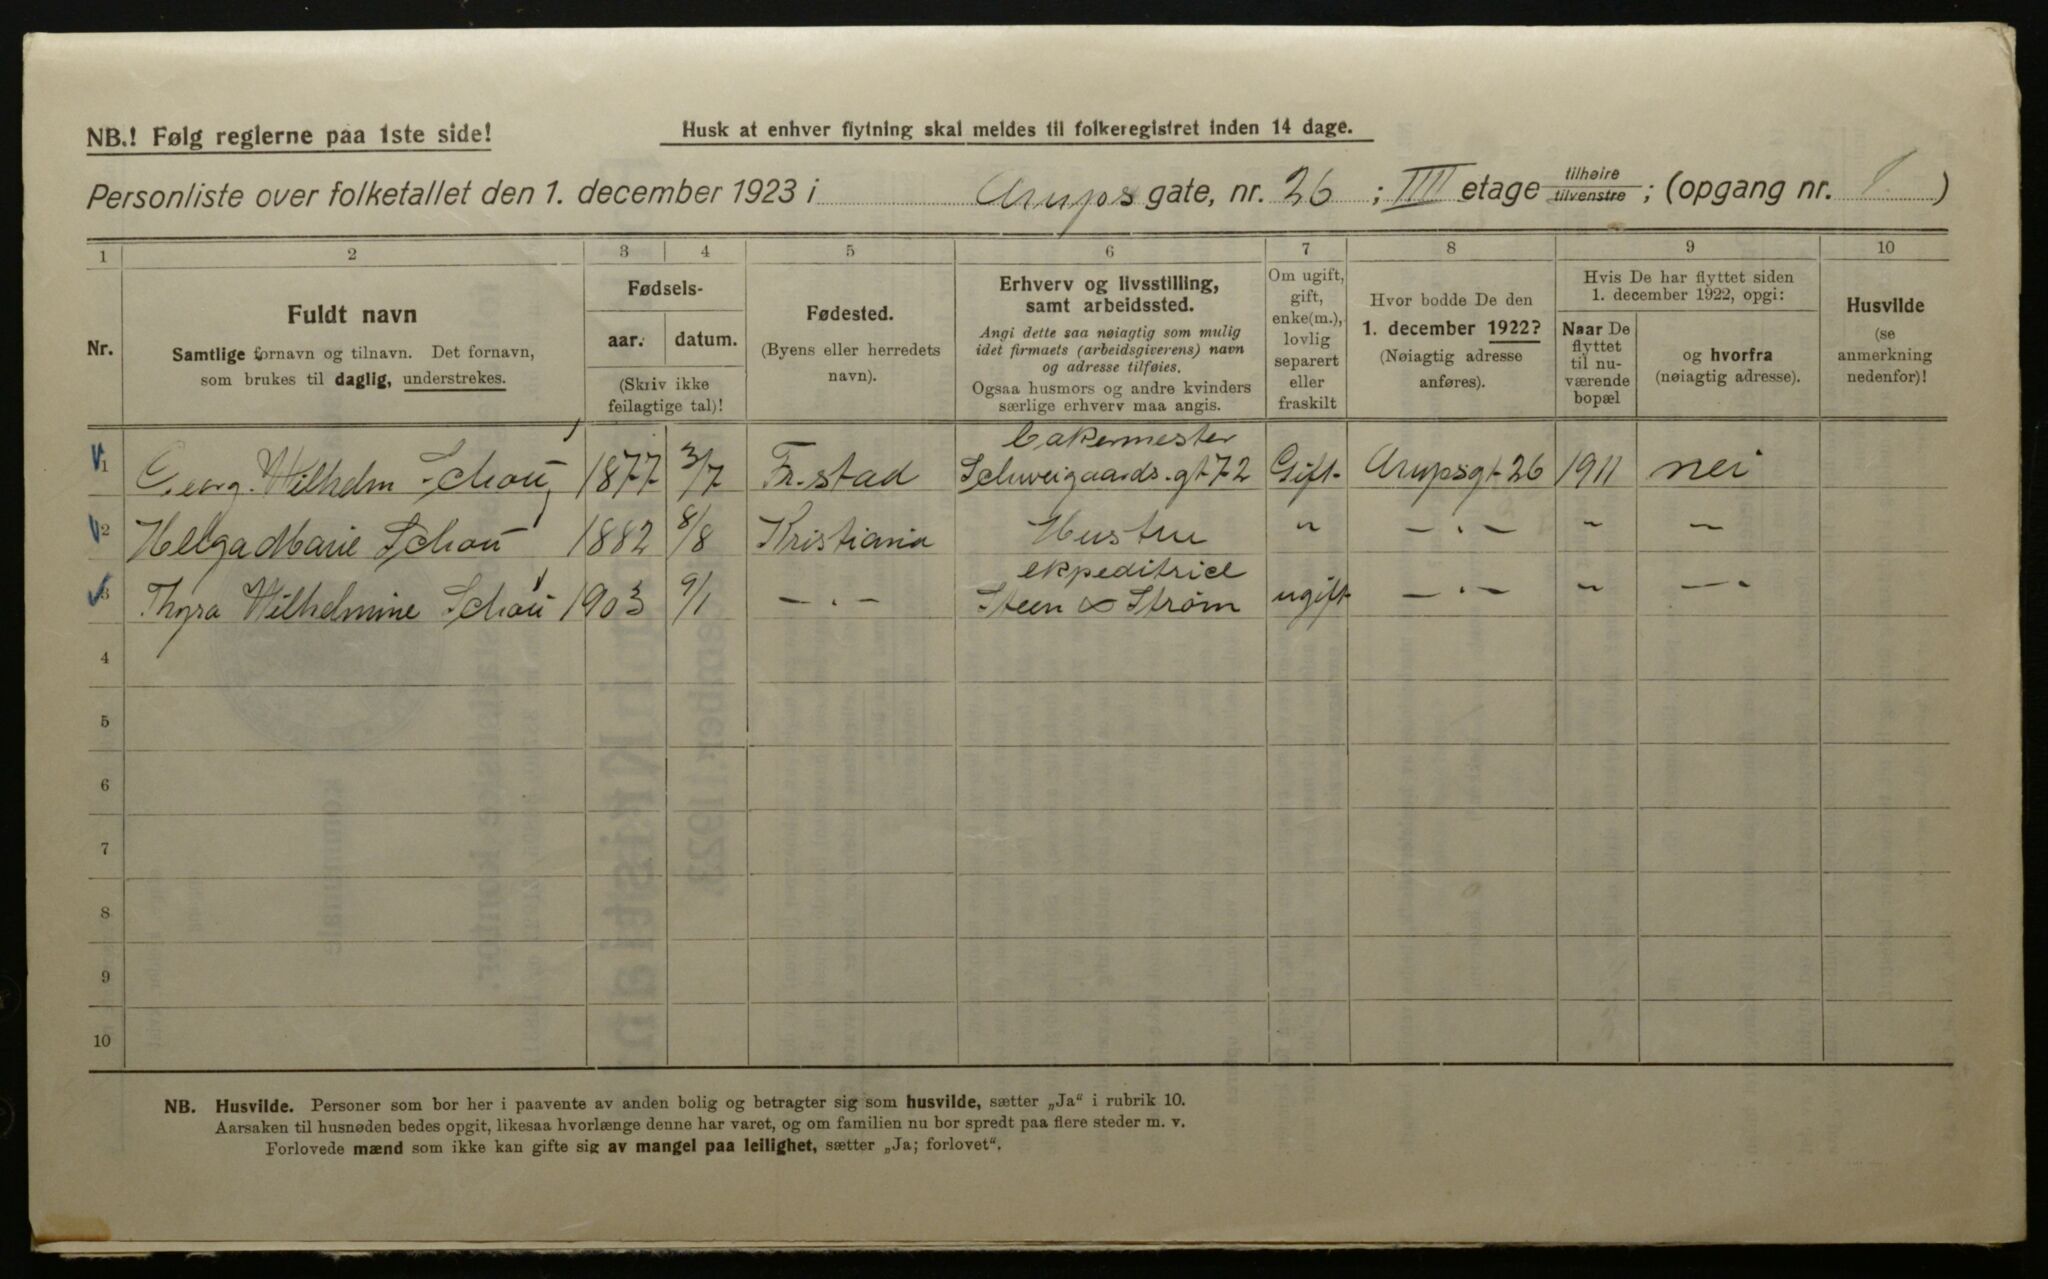 NB.! Følg reglerne paa 1ste side!
Husk at enhver flytning skal meldes til folkeregistret inden 14 dage.
Personliste over folketallet den 1. december 1923 i Arups gate, nr. 26 ; IIII etage tilhøire tilvenstre ; (opgang nr. )
1 2 3 4 5 6 7 8 9 10
Nr.
Fuldt navn
Samtlige fornavn og tilnavn. Det fornavn,
som brukes til daglig, understrekes.
Fødsels-
aar. datum.
(Skriv ikke
feilagtige tal)!
Fødested.
(Byens eller herredets
navn).
Erhverv og livsstilling,
samt arbeidssted.
Angi dette saa nøiagtig som mulig
idet firmaets (arbeidsgiverens) navn
og adresse tilføies.
Ogsaa husmors og andre kvinders
særlige erhverv maa angis.
Om ugift,
gift,
enke(m.),
lovlig
separert
eller
fraskilt
Hvor bodde De den
1. december 1922?
(Nøiagtig adresse
anføres).
Hvis De har flyttet siden
1. december 1922, opgi:
Naar De
flyttet
til nu-
værende
bopæl
og hvorfra
(nøiagtig adresse).
Husvilde
(se
anmerkning
nedenfor)!
1 Georg. Wilhelm Schou 1877 3/7 Fr.stad bakermester Schweigaards.gt 72 Gift Arupsgt 26 1911 nei
2 Helga Marie Schou 1882 8/8 Kristiania Hustru " — . — " —
3 Thyra Wilhelmine Schou 1903 9/1 — . — ekpeditrice Steen & Strøm ugift — . — " — .
4
5
6
7
8
9
10
NB. Husvilde. Personer som bor her i paavente av anden bolig og betragter sig som husvilde, sætter „Ja“ i rubrik 10.
Aarsaken til husnøden bedes opgit, likesaa hvorlænge denne har varet, og om familien nu bor spredt paa flere steder m. v.
Forlovede mænd som ikke kan gifte sig av mangel paa leilighet, sætter „Ja; forlovet“.